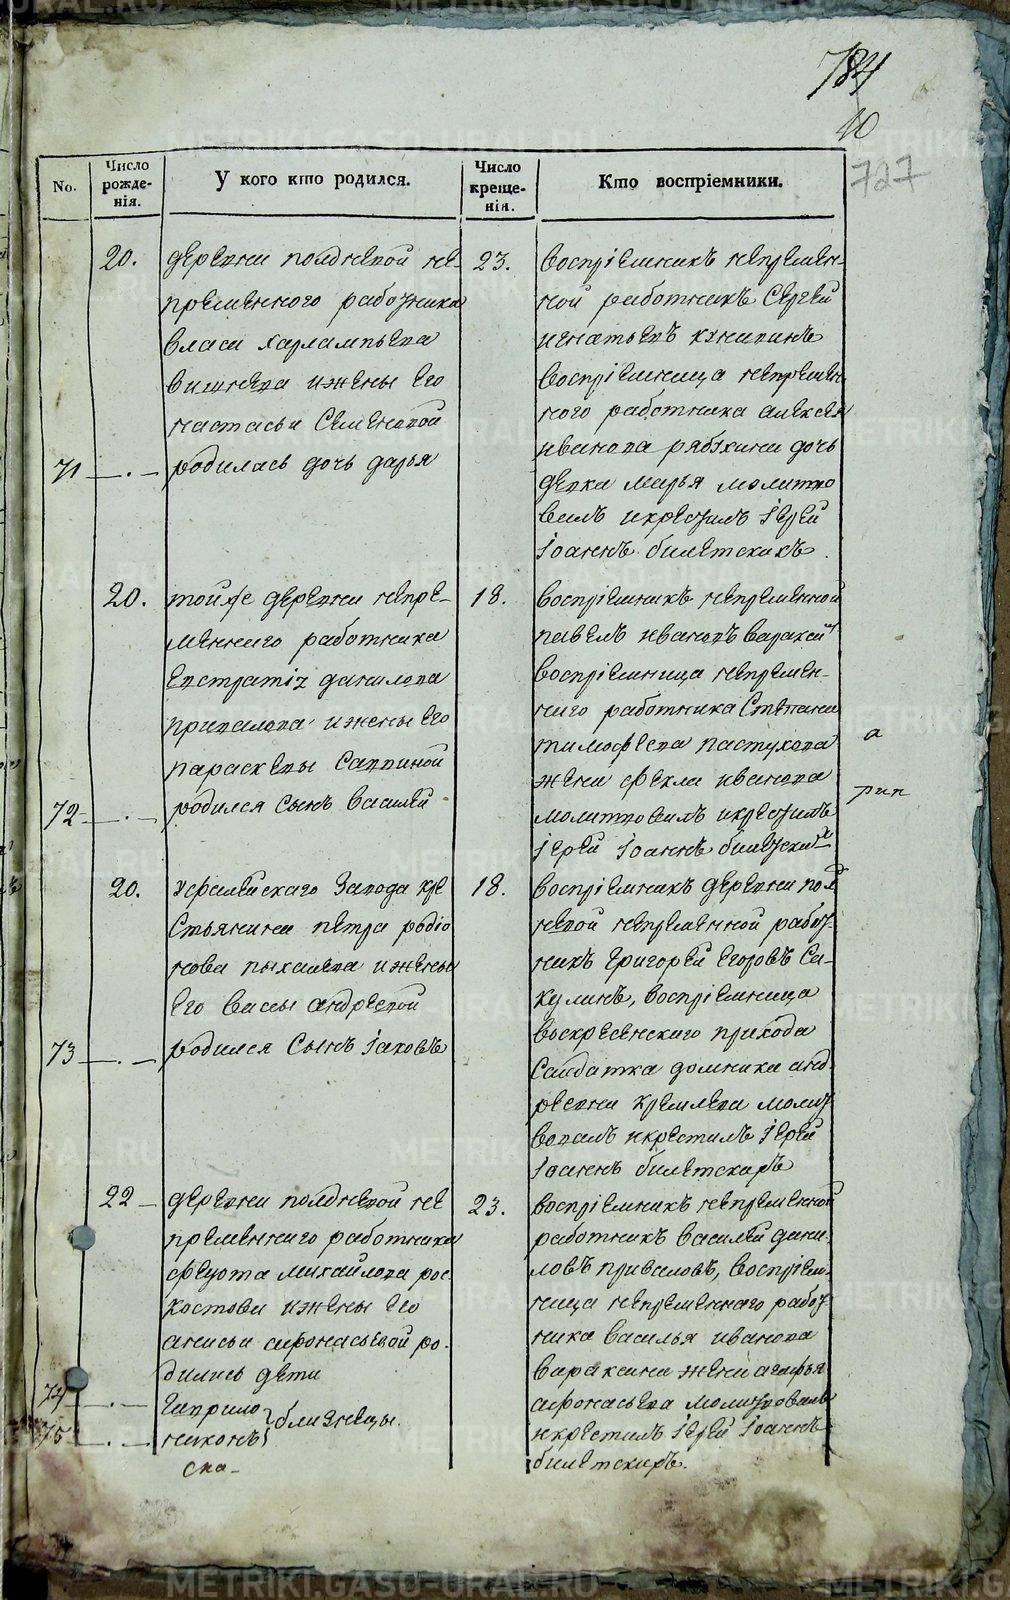 784
10
727
No.
Число рожде- нія.
У кого кто родился.
Число креще- нія.
Кто воспріемники.
20.
деревни полдневой не-
пременного работника
власа харлампьева
вишнева и жены его
настасьи Семеновой
71 родилась дочь дарья
23.
воспріемникъ непремен-
ной работникъ Сергей
игнатьевъ
воспріемница непремен-
ного работника алексея
иванова рябухина дочь
девка марья молитво
валъ и крестилъ іерей
іоаннъ билетскихъ.
20.
тойже деревни непре-
меннаго работника
Евстратія данилова
привалова и жены его
параскевы Саввиной
72 родился Сынъ василей
18.
воспріемникъ непременной
павелъ ивановъ
воспріемница непремен-
наго работника Степана
тимофеева пастухова
жена фекла иванова
молитвовалъ и крестилъ
іерей іоаннъ
20.
уфалейскаго завода кре
Стьянина петра родіо
нова пыхалева и жены
его васы андреевой
73 родился Сынъ іаковъ
18.
воспріемникъ деревни пол
невой непременной работ-
никъ григорей егоровъ Са-
кулинъ, воспріемница
воскресенского прихода
Салдатка домника анд
реевна кремлева молит
вовалъ и крестилъ іерей
іоаннъ билетскихъ
22
деревни полдневой не
пременнаго работника
федота михайлова рос
хостова и жены его
анисьи афонасьевой ро-
дились дети
74 гаврило
75 никонъ близнецы.
23.
воспріемникъ непременной
работникъ василей дани-
ловъ приваловъ, воспріем-
ница непременнаго работ-
ника василья иванова
вараксина жена агафья
афонасьева молитвовалъ
и крестилъ іерей іоаннъ
билетскихъ.
а
рип